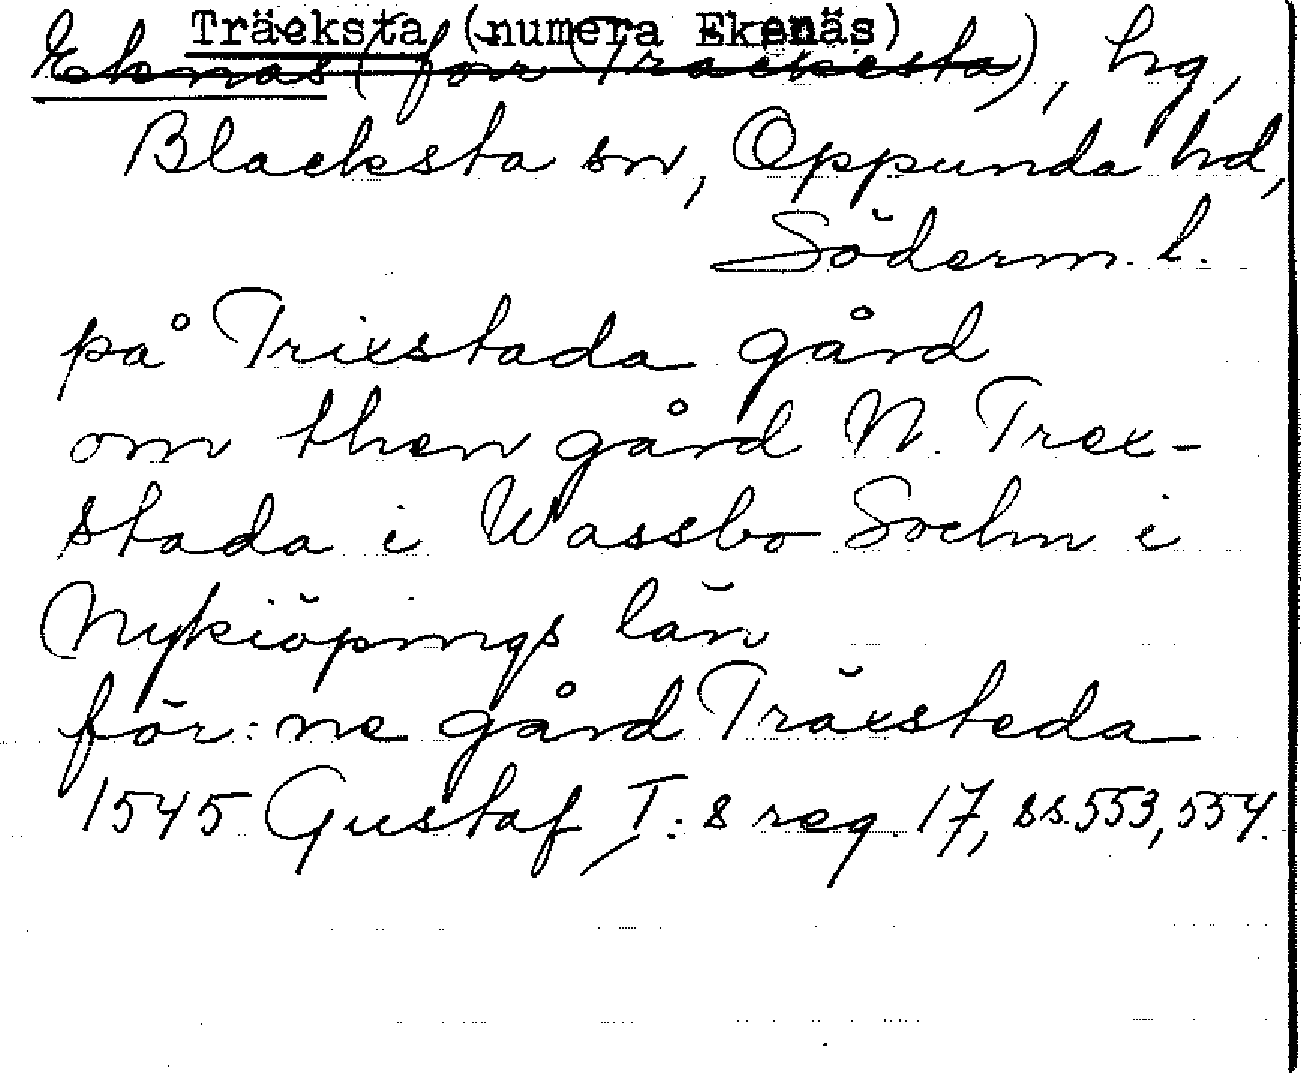 Träeksta (numera Ekenäs)
Ekenäs (förr Träekesta), hg,
Blacksta sn, Oppunda hd,
Söderm. l.
på Trixstada gård
om then gård N. Trex-
stada i Wassbo Sochn i
Nykiöpings län
för:ne gård Träxsteda
1545 Gustaf I:s reg. 17, ss. 553, 554.